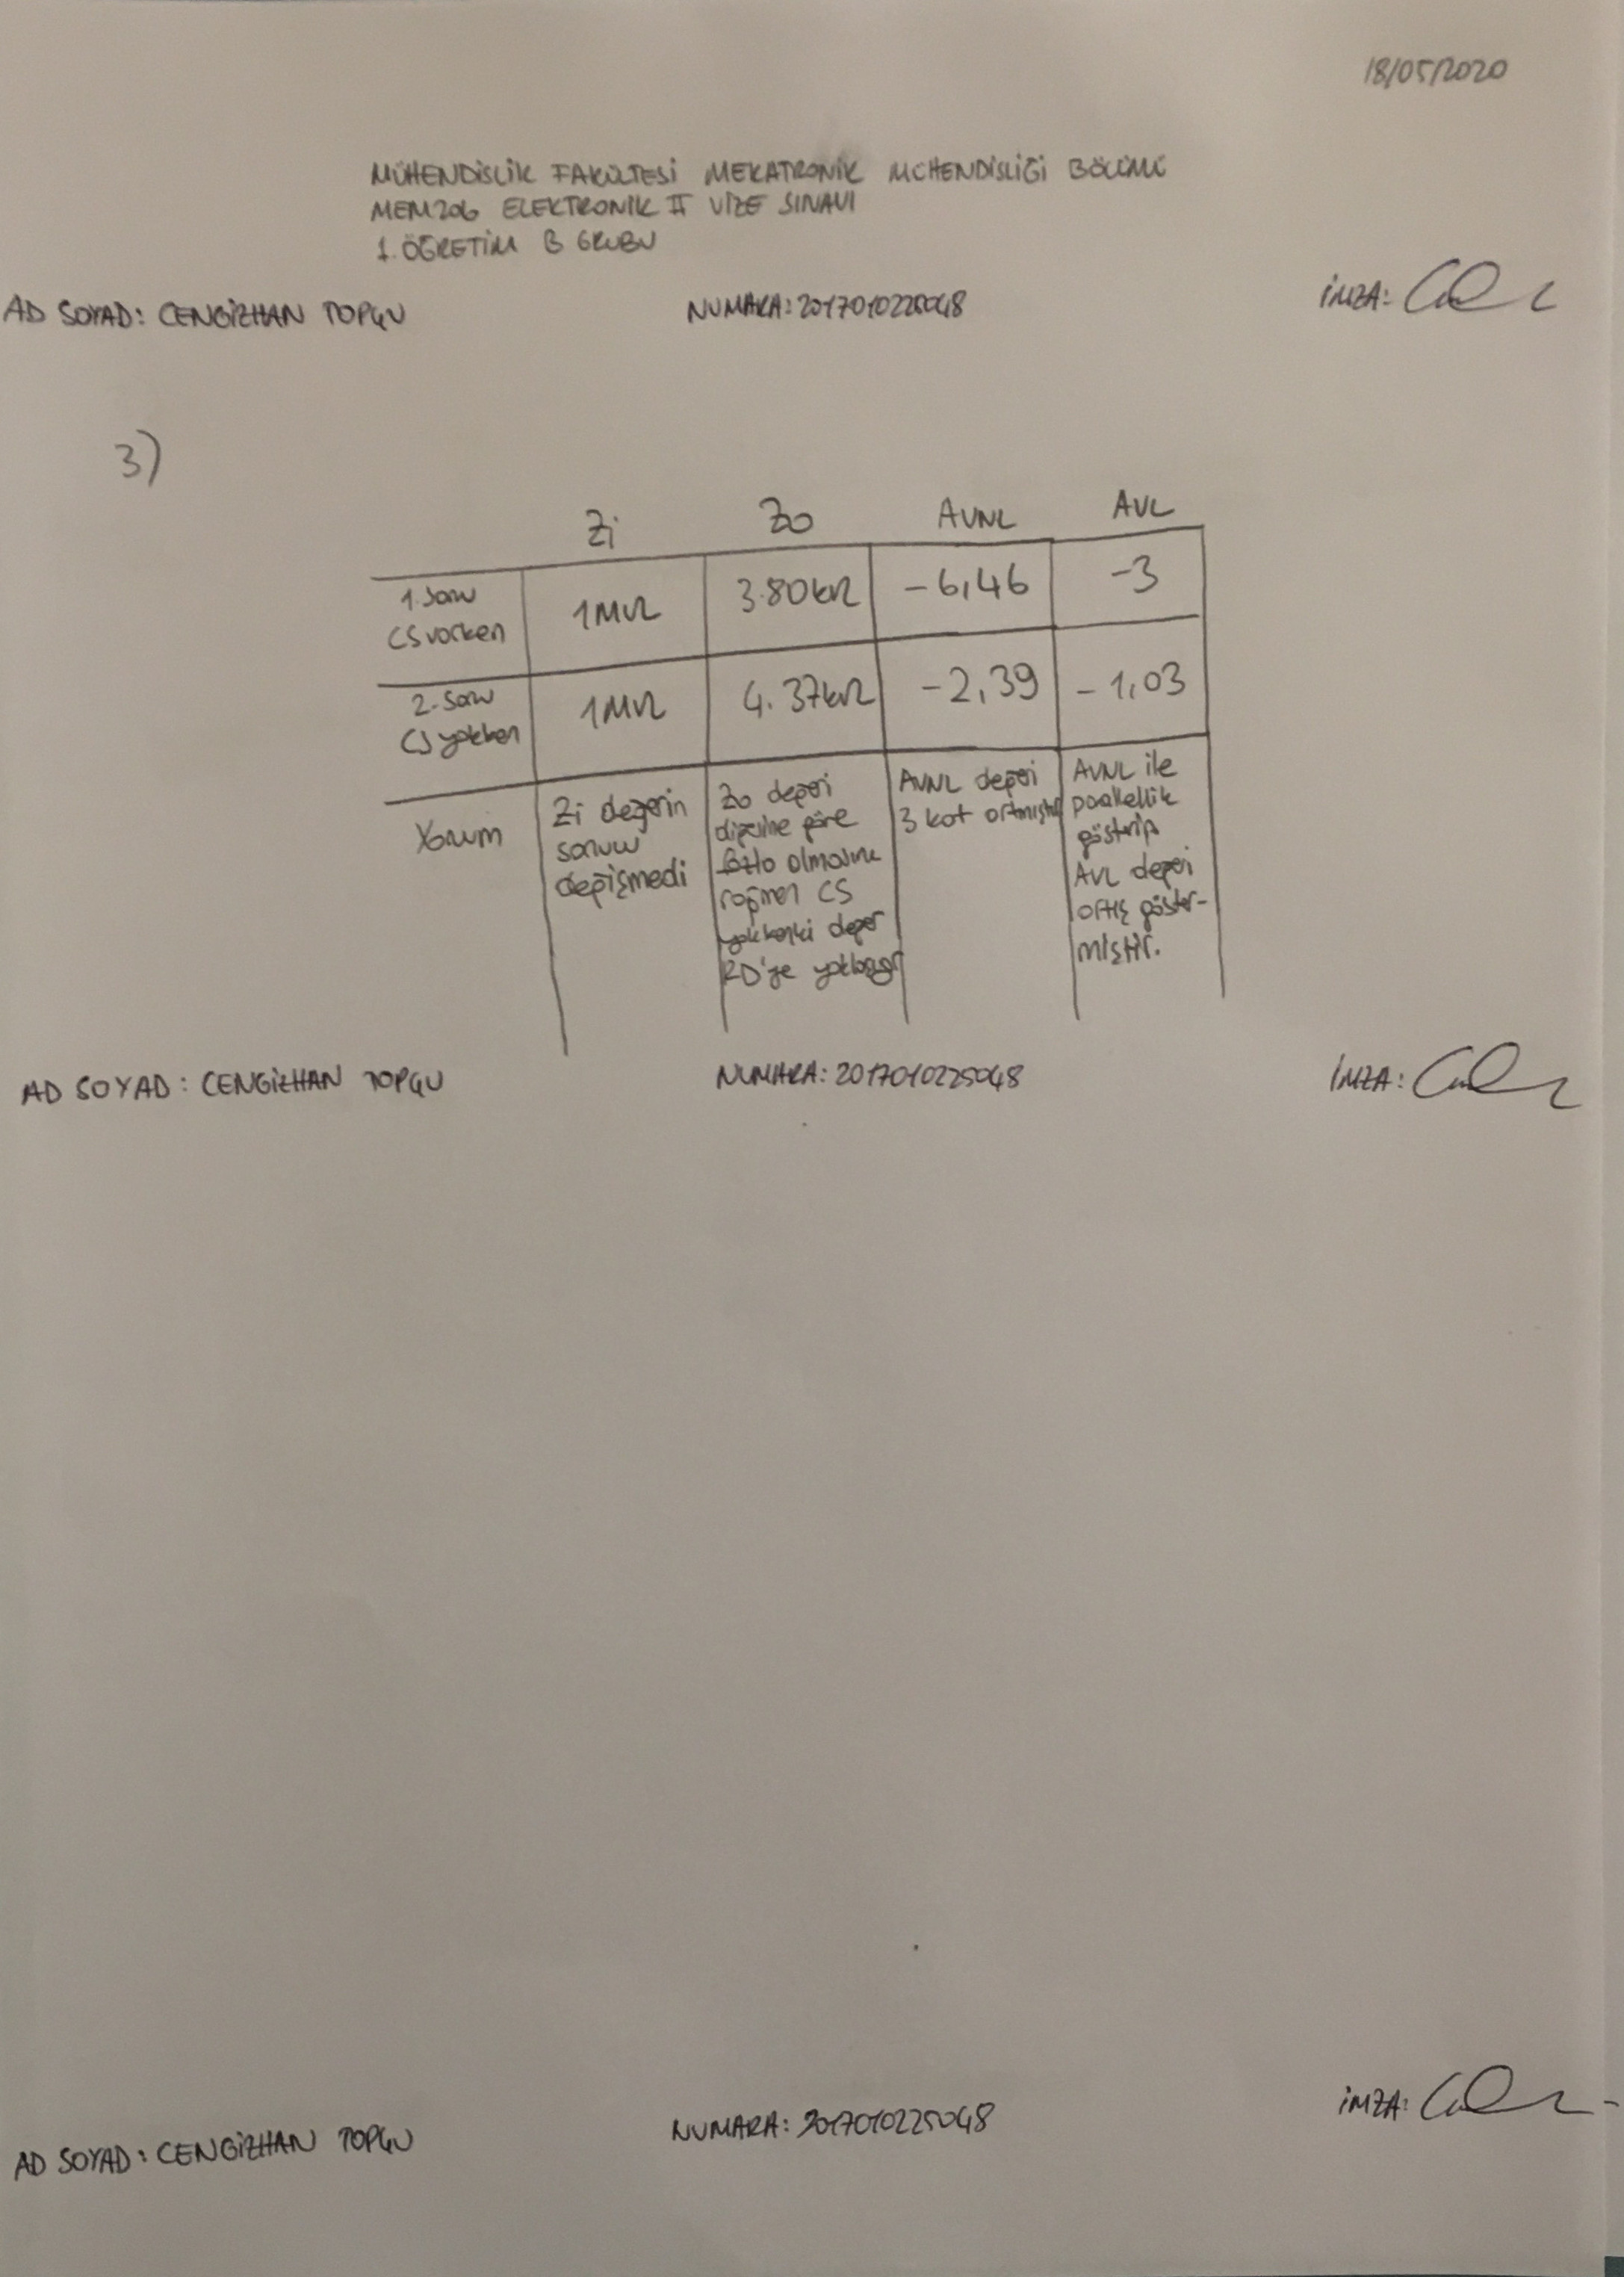 18/05/2020
MÜHENDİSLİK FAKÜLTESİ MEKATRONİK MÜHENDİSLİĞİ BÖLÜMÜ
MEM206 ELEKTRONİK II VİZE SINAVI
1. ÖĞRETİM B GRUBU
AD SOYAD: CENGİZHAN TOPÇU NUMARA: 2017010225048 İMZA:
3)
Zi Zo AVNL AVL
1. Soru CS varken 1MΩ 3.80kΩ -6,46 -3
2. Soru CS yokken 1MΩ 4.37kΩ -2,39 -1,03
Yorum
Zi değerin
sonucu
değişmedi
Zo değeri
diğerine göre
fazla olmasına
rağmen CS
yokkenki değer
RD'ye yaklaşır
AVNL değeri
3 kat artmıştır
AVNL ile
paralellik
göstrip
AVL değeri
artış göster-
miştir.
AD SOYAD: CENGİZHAN TOPÇU NUMARA: 2017010225048 İMZA:
AD SOYAD: CENGİZHAN TOPÇU NUMARA: 2017010225048 İMZA: